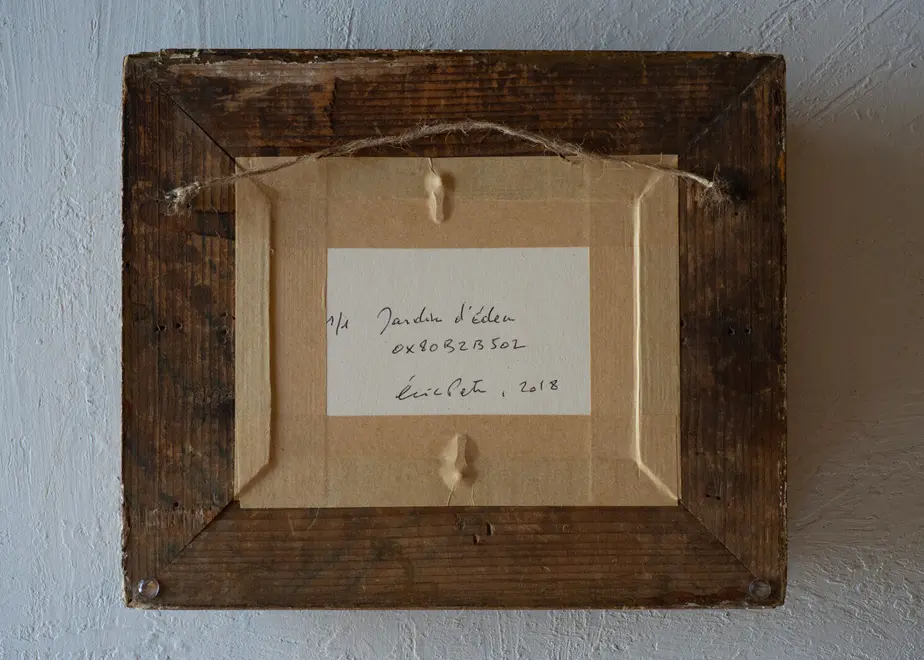 1/1 Jardin d'Éden
0x80B2B502
éric Petr, 2018